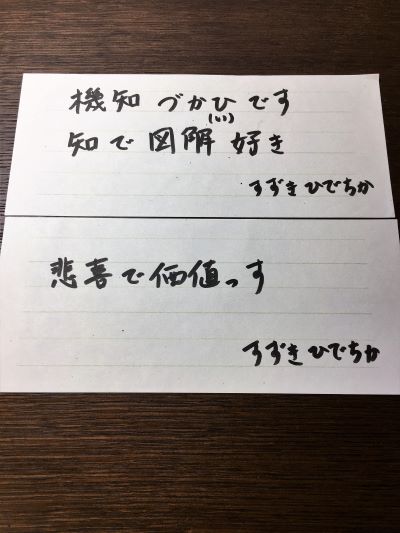 機知 づかひ です
(い)
知で 図解 好き
すずき ひでちか
悲喜で価値っす
すずき ひでちか